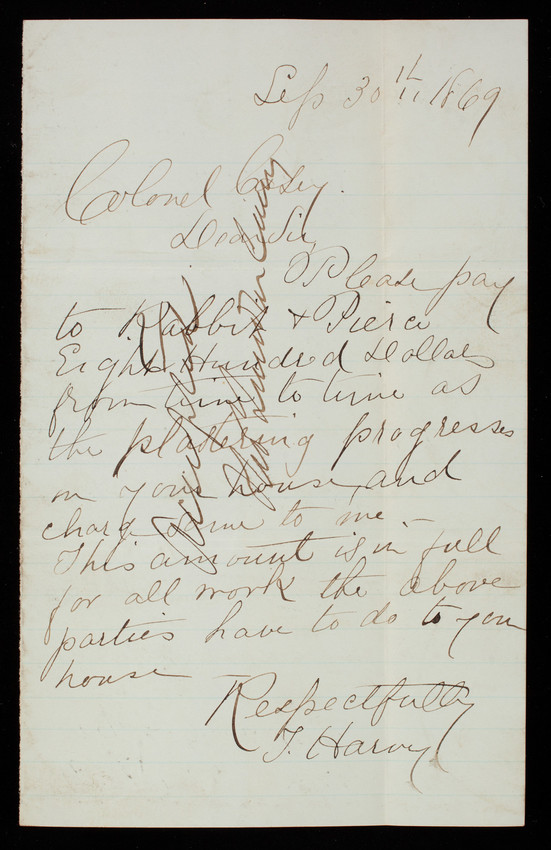 Sep 30th 1869
Colonel Casey.
Dear Sir,
Please pay
to Rabbit & Pierce
Eight Hundred Dollars
from time to time as
the plastering progresses
on your house and
charg same to me -
This amount is in full
for all work the above
parties have to do to you
house
Respectfully
T. Harvey